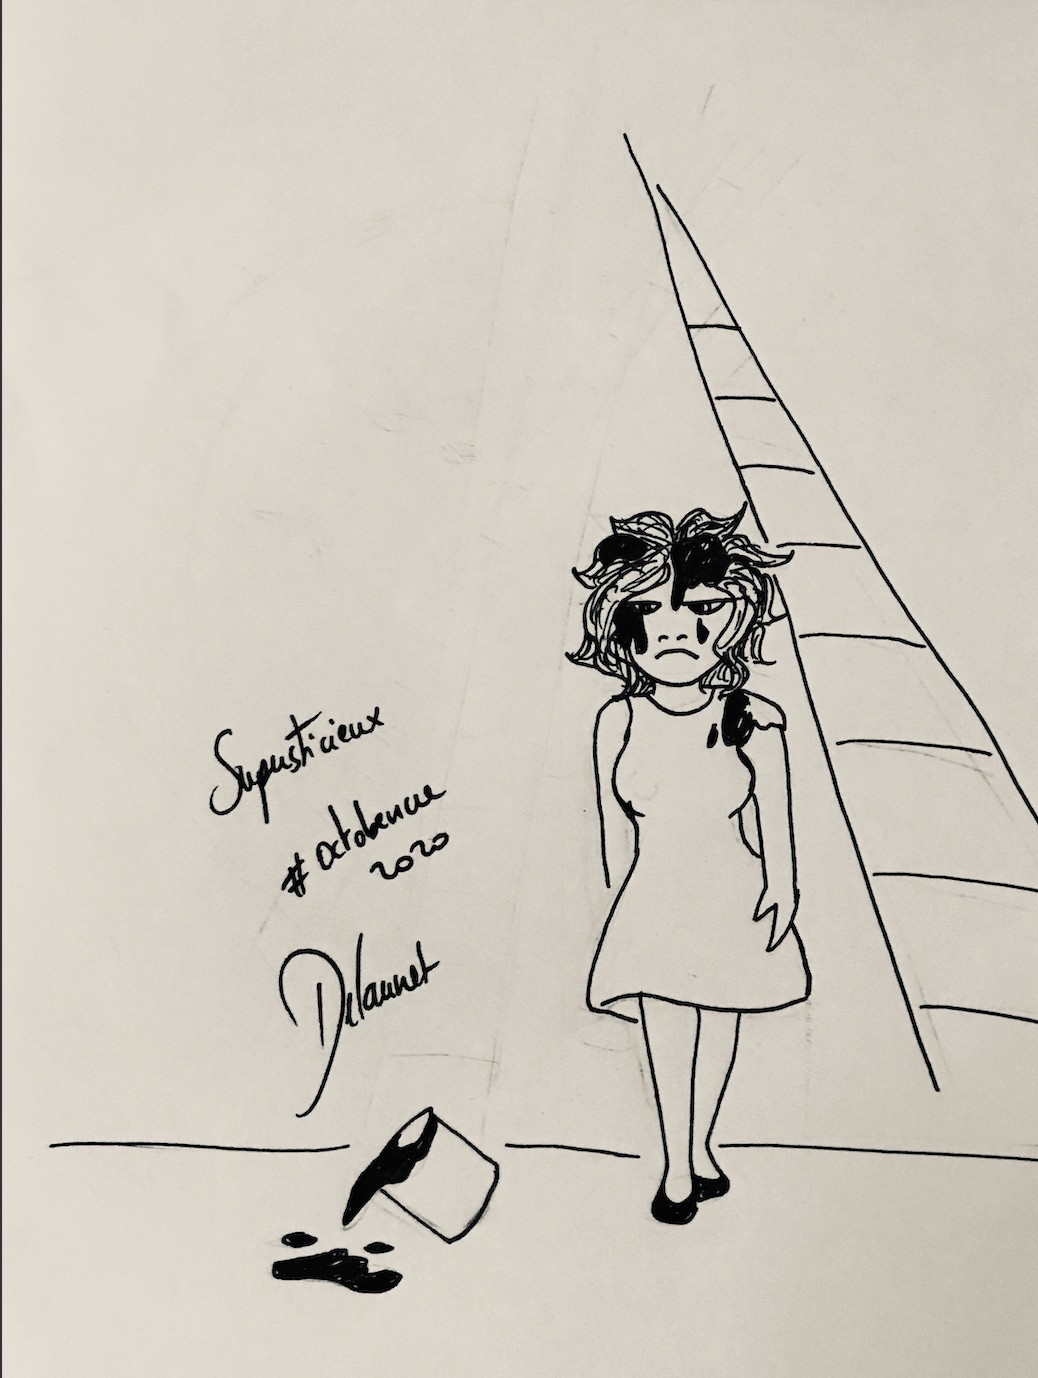 Supersticieux
#octobencre
2020
Delaunet